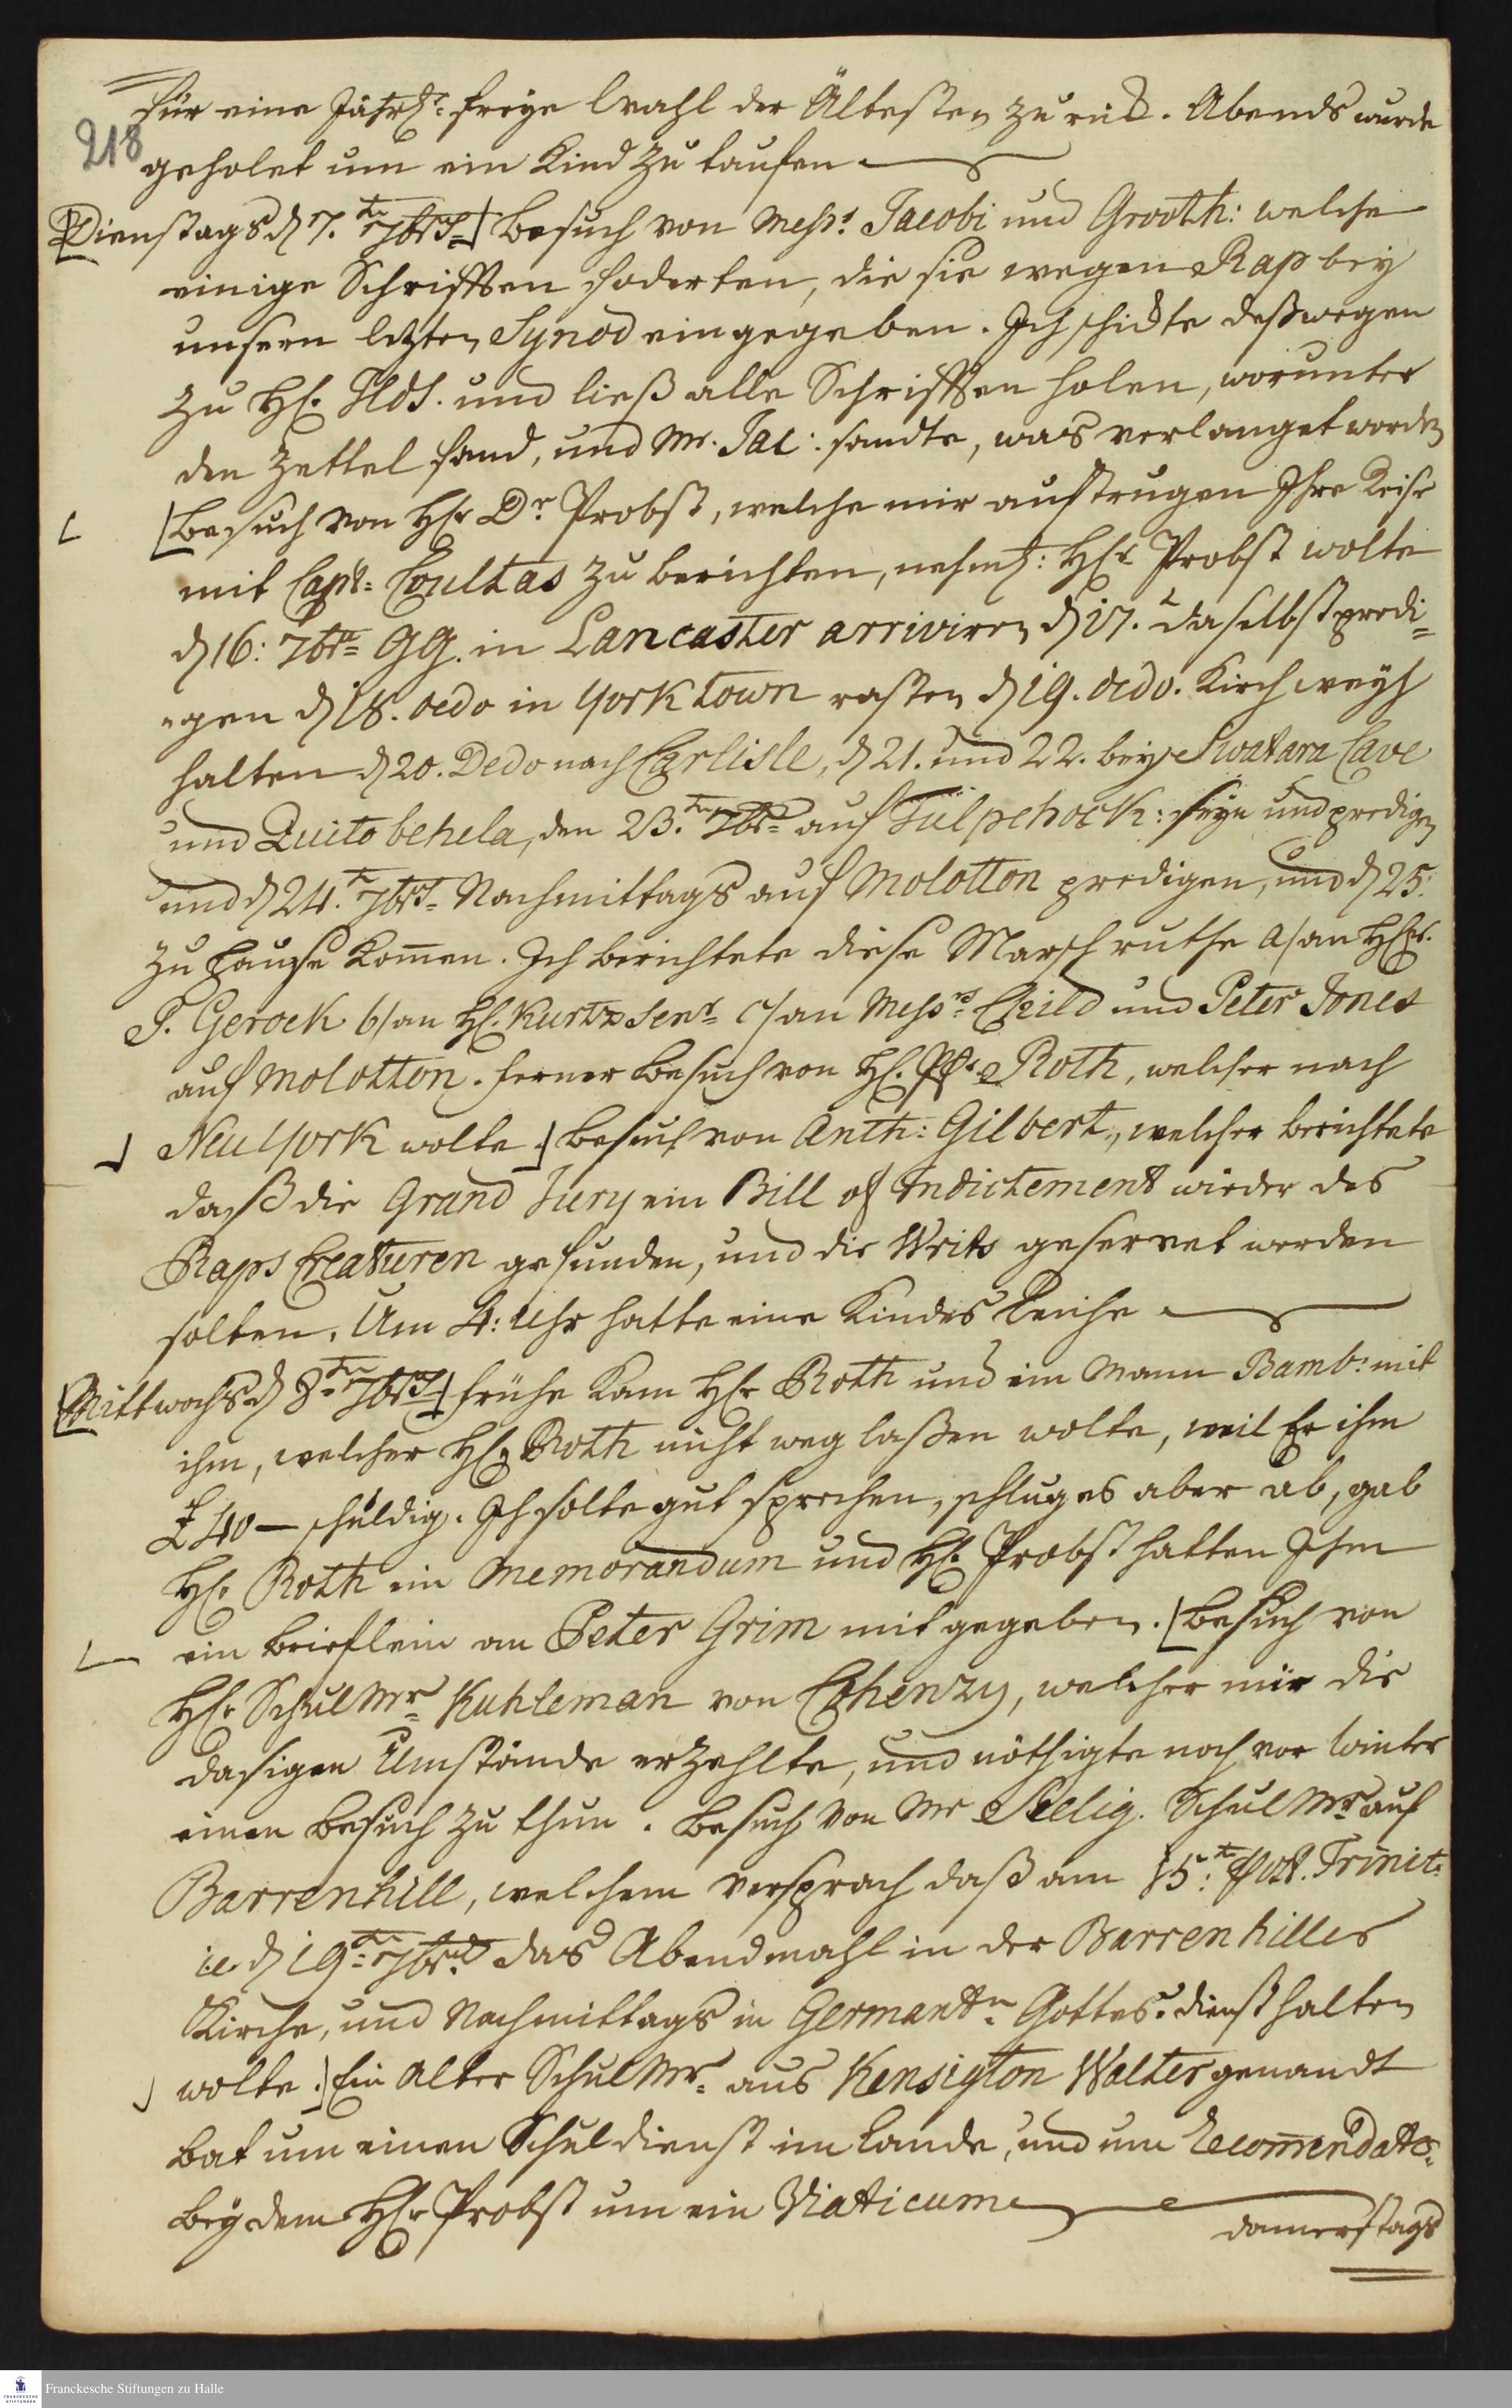 für eine Jährl: freye Wahl der Ältesten zurück. Abends wurde
218
geholet um ein Kind zu taufen
Dienstags d 7.ten 7brs Besuch von Messrs. Jacobi und Grooth: welche
einige Schrifften foderten, die sie wegen Rap bey
unsern letzten Synod eingegeben. Ich schickte deßwegen
zu HE. und ließ alle Schrifften holen, worunter
den Zettel fand, und Mr. Jac: sandte, was verlanget worden
Besuch von HEr Dr Probst, welche mir auftrugen Ihre Reise
mit Capt: Coultas zu berichten, nehml: HEr Probst wolte
d 16: 7br GG. in Lancaster arriviren d 17. daselbst predi=
=gen d 18. dedo in Yorktown rasten d 19. dedo. Kirchweyh
halten d 20. Dedo nach Carlisle, d 21. und 22. bey Swatara Cave
und Quitobehela, den 23.ten 7br auf Tulpehock: seyn und predigen
und d 24.t 7brs Nachmittags auf Molotton predigen, und d 25.
zu Hause kommen. Ich berichtete diese Marschruthe a/ an HErr
P. Gerock b/ an HE. Kurtz Senr c/ an Messrs Child und Peter Jones
auf Molotton. ferner Besuch von HE. Pf. Roth, welcher nach
Neu York wolte. Besuch von Anth: Gilbert, welcher berichtete
daß die Grand Jury ein Bill of Indictement wieder des
Raps Creaturen gefunden, und die Writs geservet werden
solten. Um 4: Uhr hatte eine Kindes Leiche
Mittwochs d 8ten 7brs frühe kam HEr Roth und ein Mann Bamb: mit
ihm, welcher HE Roth nicht weg laßen wolte, weil Er ihm
£ 40 — schuldig. Ich solte gut sprechen, schlug es aber ab, gab
HE. Roth ein Memorandum und HE. Probst hatten Ihm
ein Brieflein an Peter Grim mit gegeben. Besuch von
HEr SchulMr Kuhleman von Cohenzy, welcher mir die
dasigen Umstände erzehlte, und nöthigte noch vor Winter
einen Besuch zu thun. Besuch von Mr Seelig. SchulMr auf
Barrenhill, welchem versprach daß am 15.t post. Trinit:
i.e. d 19ten 7brs das Abendmahl in der Barrenhiller
Kirche, und Nachmittags in Germantn Gottes=dienst halten
wolte. Ein Alter SchulMr aus Kensigton Walter genandt
bat um einen Schuldienst im Lande, und um Recommendatio:
bey dem HEr Probst um ein Viaticum
donnerstags
Franckesche Stiftungen zu Halle